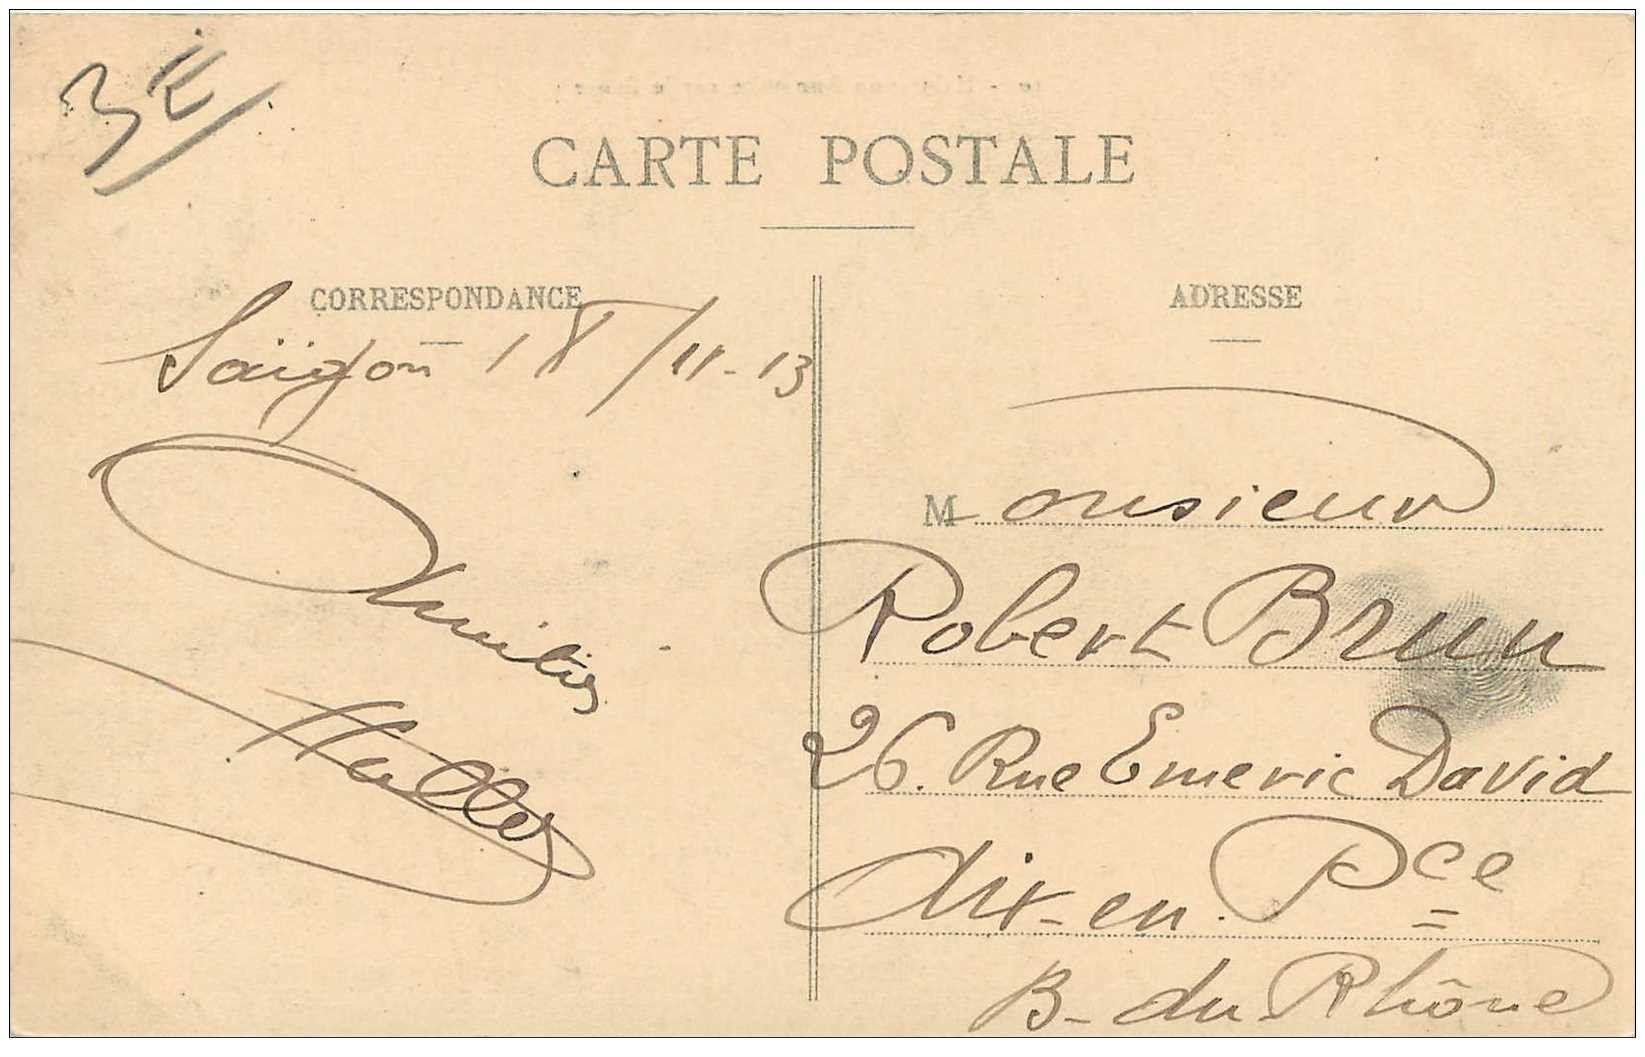 3E
CARTE POSTALE
CORRESPONDANCE
Saïgon 18/11-13
Amitiés
ADRESSE
Monsieur
Robert Brun
26. Rue Emeric David
Aix-en Pce
B-du Rhône